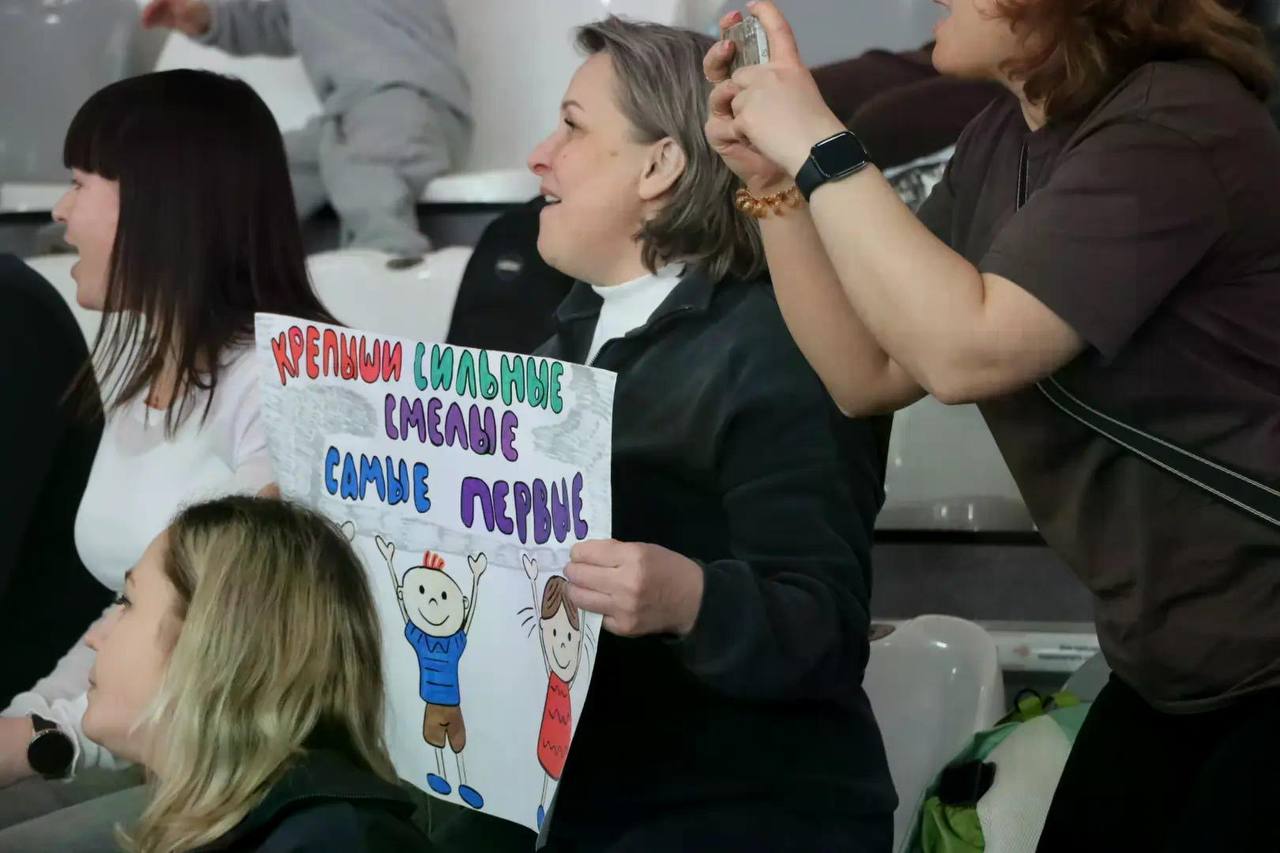 КРЕПЫШИ СИЛЬНЫЕ
СМЕЛЫЕ
САМЫЕ ПЕРВЫЕ